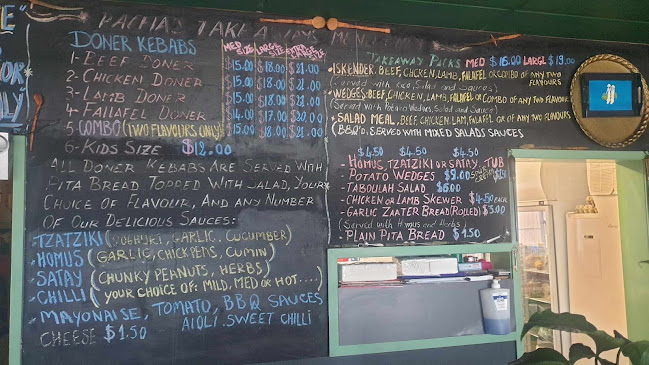 PACHAS TAKEAWAYS MENU
DONER KEBABS
MED SIZE LARGE SIZE EXTRA LARGE SIZE
1- BEEF DONER $15.00 $18.00 $21.00
2- CHICKEN DONER $15.00 $18.00 $21.00
3- LAMB DONER $15.00 $18.00 $21.00
4- FALLAFEL DONER $14.00 $17.00 $20.00
5 COMBO (TWO FLAVOURS ONLY) $15.00 $18.00 $21.00
6- KIDS SIZE $12.00
ALL DONER KEBABS ARE SERVED WITH
PITA BREAD TOPPED WITH SALAD, YOUR
CHOICE OF FLAVOUR, AND ANY NUMBER
OF OUR DELICIOUS SAUCES:
-TZATZIKI (YOGHURT, GARLIC, CUCUMBER)
-HOMUS (GARLIC, CHICKPEAS, CUMIN)
-SATAY (CHUNKY PEANUTS, HERBS)
-CHILLI (YOUR CHOICE OF: MILD, MED OR HOT....)
-MAYONAISE, TOMATO, BBQ SAUCES
AIOLI. SWEET CHILLI
CHEESE $1.50
TAKEAWAY PACKS MED $16.00 LARGE $19.00
-ISKENDER. BEEF, CHICKEN, LAMB, FALAFEL OR COMBO OF ANY TWO FLAVOURS
(Served with Rice, Salad and Sauces)
-WEDGES. BEEF, CHICKEN, LAMB, FALAFEL OR COMBO OF ANY TWO FLAVOUR
(Served with Potato Wedges, Salad and Sauce)
-SALAD MEAL. BEEF, CHICKEN LAM, FALAFEL OR OF ANY TWO FLAVOURS
(BBQ'D. SERVED WITH MIXED SALADS SAUCES
$4.50 $4.50 $4.50
- HOMUS, TZATZIKI OR SATAY. TUB
POTATO WEDGES $9.00
- TABOULAH SALAD $6.00
- CHICKEN OR LAMB SKEWER $4.50 EACH
- GARLIC ZAATER BREAD (ROLLED) $5.00
(Served with Homus and Herbs)
- PLAIN PITA BREAD $1.50